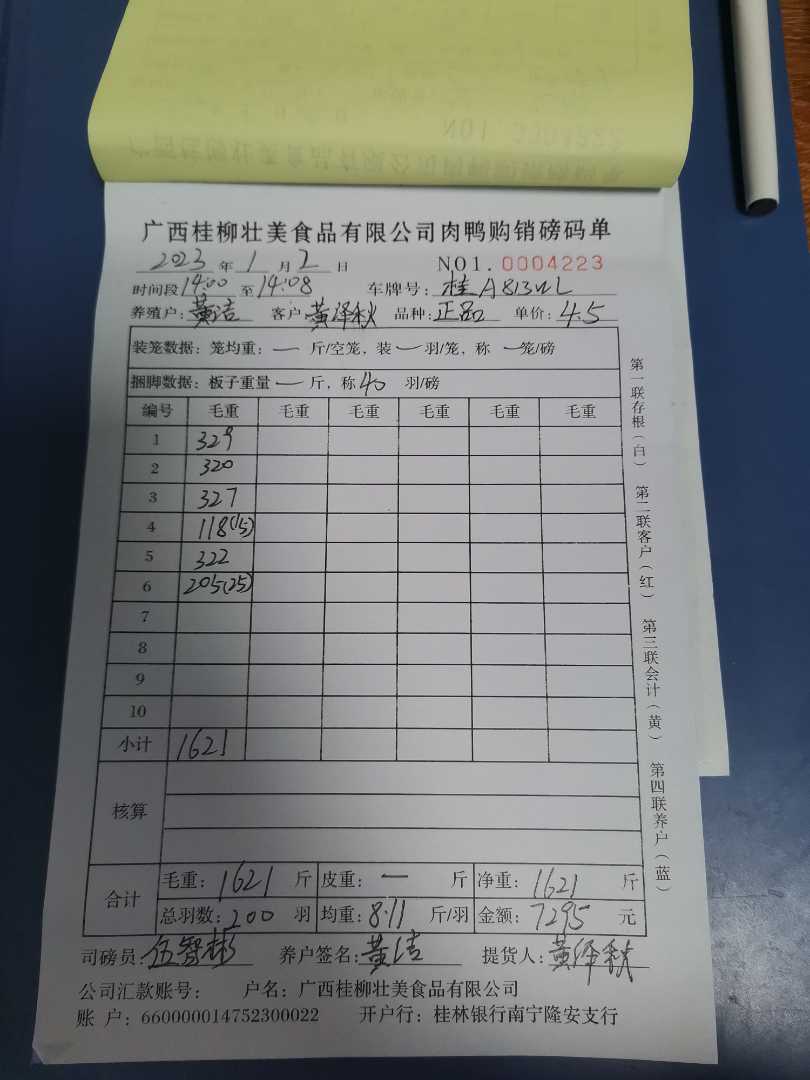 广西桂柳壮美食品有限公司肉鸭购销磅码单
2023 年 1 月 2 日 NO1.0004223
时间段 14:00 至 14:08 车牌号: 桂A813WL
养殖户: 黄洁 客户 黄泽秋 品种: 正品 单价: 4.5
装笼数据: 笼均重: — 斤/空笼, 装 — 羽/笼, 称 — 笼/磅
捆脚数据: 板子重量 — 斤, 称 40 羽/磅
编号 毛重 毛重 毛重 毛重 毛重 毛重
1 329
2 320
3 327
4 118(15)
5 322
6 205(25)
7
8
9
10
小计 1621
核算
合计
毛重: 1621 斤 皮重: — 斤 净重: 1621 斤
总羽数: 200 羽 均重: 8.11 斤/羽 金额: 7295 元
司磅员: 伍智彬 养户签名: 黄洁 提货人: 黄泽秋
公司汇款账号: 户名: 广西桂柳壮美食品有限公司
账 户: 660000014752300022 开户行: 桂林银行南宁隆安支行
第一联存根(白) 第二联客户(红) 第三联会计(黄) 第四联养户(蓝)